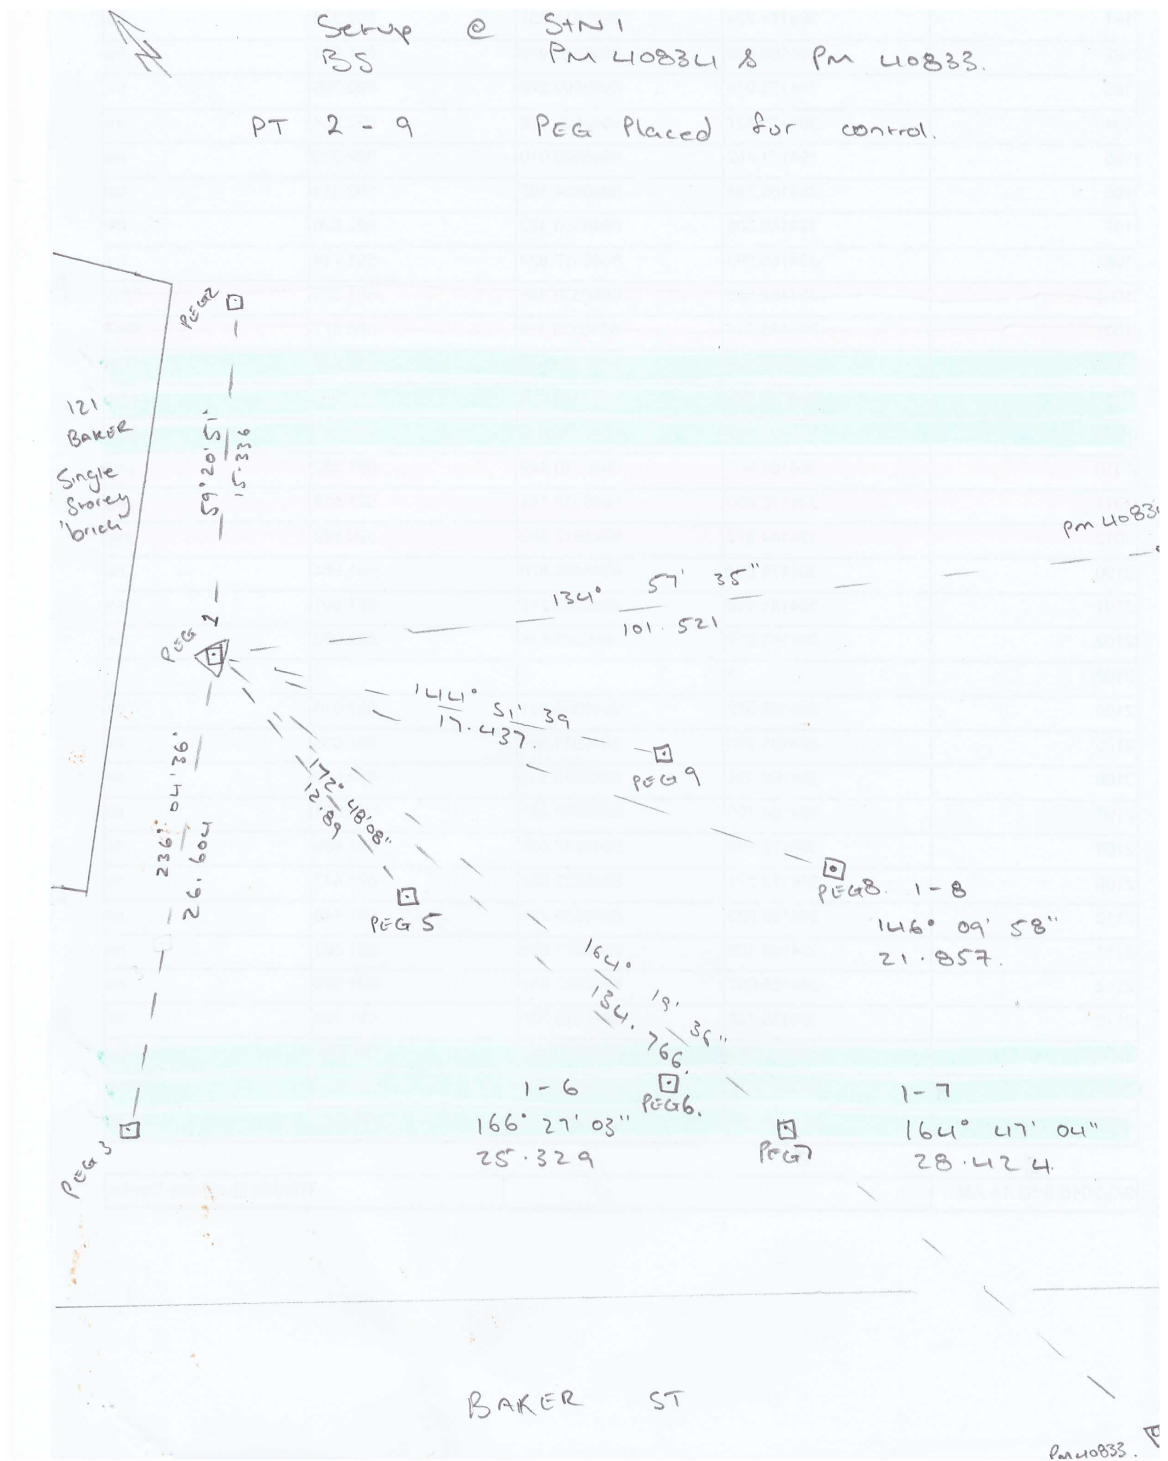 Setup @ STN 1
BS PM 40834 & PM 40833.
PT 2 - 9 PEG Placed for control.
PEG 2
121
BAKER
Single
Storey
'brick'
59° 20' 51'
15.336
PM 40834
134° 57' 35"
101.521
PEG 1
144° 51' 39
17.437.
PEG 9
236° 04' 36"
26.604
172° 48' 08"
12.89
PEG 5
PEG 8. 1-8
146° 09' 58"
21.857.
164° 19' 36"
134.766.
PEG 6.
1-6
166° 27' 03"
25.329
PEG 7
1-7
164° 47' 04"
28.424
PEG 3
BAKER ST
PM 40833.